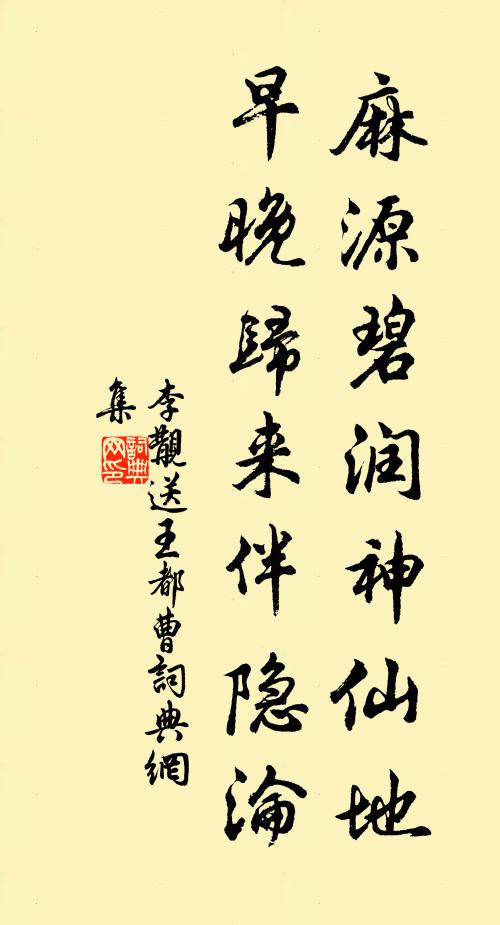 麻源碧润神仙地
早晚歸来伴隐淪
李覯送王都曹詞典網
集
詞典网印